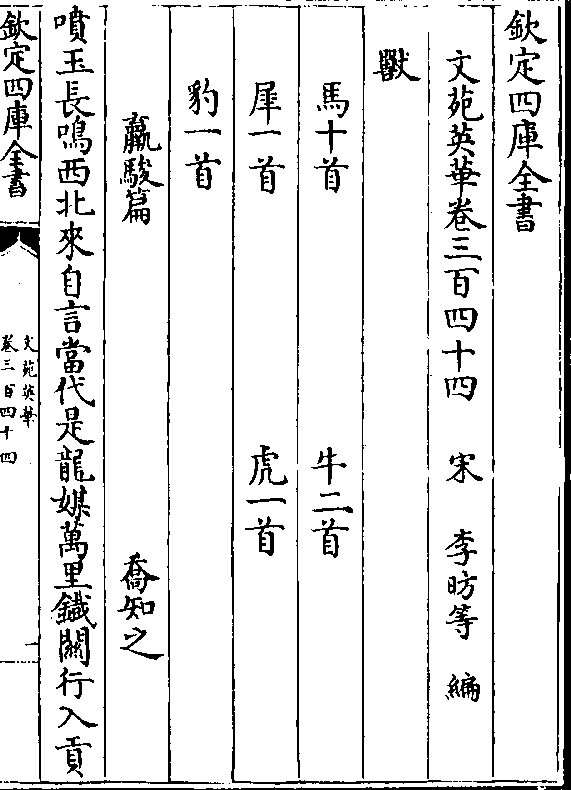 欽定四庫全書
文苑英華卷三百四十四 宋 李昉等 編
獸
馬十首 牛二首
犀一首 虎一首
豹一首
羸駿篇 喬知之
噴玉長鳴西北來自言當代是龍媒萬里鐵關行入貢
欽定四庫全書
文苑英華
卷三百四十四
一